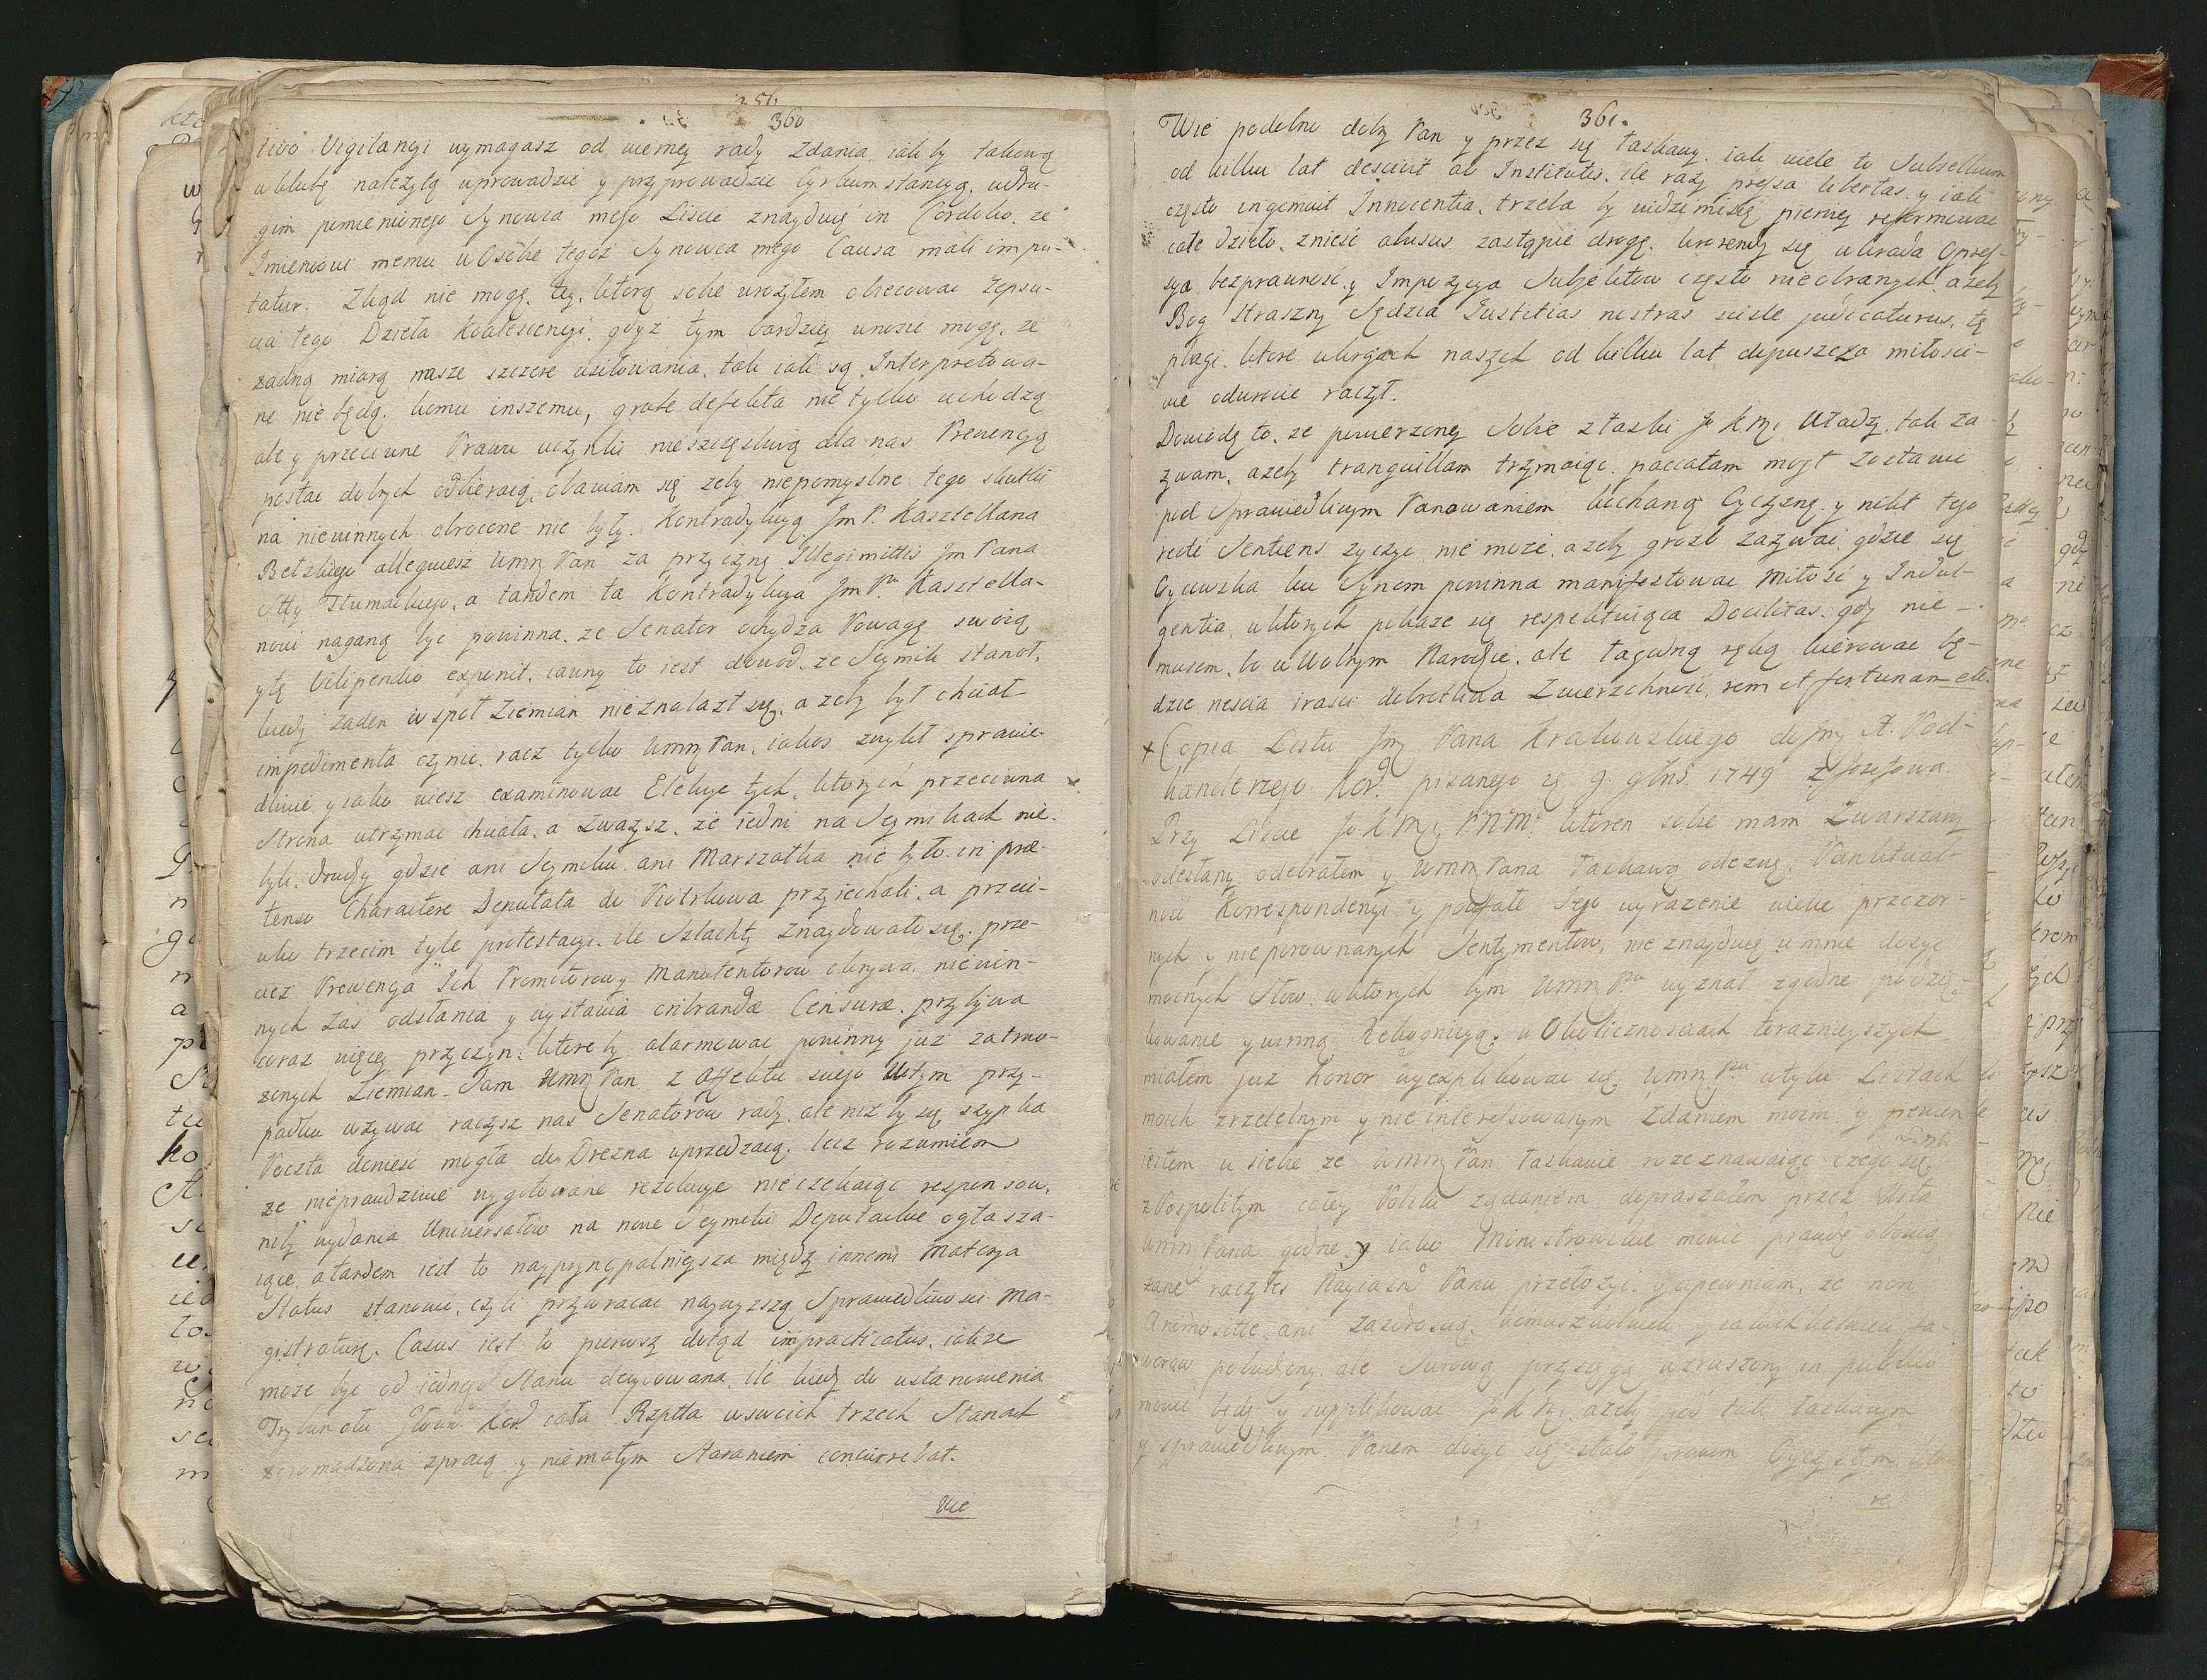 356
360
tivo Vigilancyi wymagasz od wierney rady Zdania, iak by takową
w klubę należytą wprowadzić y przyprowadzić Cyrkumstancyą, w dru-
gim pomienionego Synowca mego Liście znayduię in Cordolio, ze
Imieniowi memu w Osobie tegoz Synowca mego Causa mali impu-
tatur. Zkąd nie mogę, tey, ktorą sobie wrozyłem obiecować Zepsu-
cia tego Dzieła Koalescencyi, gdyż tym bardziey wnosić mogę, ze
zadną miarą nasze szczere usiłowania, tak iak są Interpretowa-
ne nie będą. komu inszemu, grube defekta nie tylko uchodzą
ale y przeciwne Prawu uczynki nieszczęsliwą dla nas Prewencyą
postac dobrych odbieraią, obawiam się zeby niepomyslne tego skutki
na niewinnych obrocone nie były. Kontradykcyą Jm P. Kasztellana
Bełzkiego alleguiesz Wmm Pan za przyczynę Illegimittis Jm Pana
Stty Tłumackiego, a tandem ta Kontradykcya Jm Pu Kasztella-
nowi naganą byc powinna, ze Senator ochydza Powagę swoią
ytę Vilipendio exponit, iawny to iest dowod, ze Seymik stanoł,
kiedy zaden wspoł Ziemian nieznalazł się, a zeby był chciał
impedimenta czynic. racz tylko Wmm Pan, iakos zwykł sprawie-
dliwie y iako wiesz examinowac Elekcye tych, ktorych przeciwna
Strona utrzymac chciała, a Zwazysz, ze iedni na Seymikach nie-
byli, drudzy gdzie ani Seymiku ani Marszałka nie było, in præ-
tenso Charactere Deputata do Piotrkowa przyiechali, a przeci-
wko trzecim tyle protestacyi, ile Szlachty znaydowało się, prze-
ciez Prewencya Ich Promotorow y Manutentorow okrywa, niewin-
nych zas odsłania y wystawia cribrandæ Censuræ, przybywa
coraz więcey przyczyn, ktore by alarmowac powinny juz zatrwo-
zonych Ziemian. Sam Wmm Pan z Affektu swego Wtym przy-
padku uzywac raczysz nas Senatorow rady, ale niz by się szypka
Poczta doniesc mogła do Drezna uprzedzaią, lecz rozumiem
ze nieprawdziwie wygotowane rezolucye nieczekaiąc responsow,
niby wydania Uniwersałow na nowe Seymiki Deputackie ogłasza-
iące, a tandem iest to nayprzyncypalnieysza między innemi Materya
Status stanowic, czyli przywracac naywyzszą Sprawiedliwosci Ma-
gistraturę. Casus iest to pierwszy dotąd impracticatus, iakze
moze byc od iednego Stanu decydowana, ile kiedy do ustanowienia
Trybunału Głown: Kor: cała Rzptta w swoich trzech Stanach
zgromadzona z pracą y niemałym staraniem concurrebat.
Wie
361.
Wie podobno dobry Pan y przez się łaskawy, iak wiele to Subsellium
od kilku lat descivit ab Institutis, ile razy pressa libertas, y iak
często ingemuit Innocentia, trzeba by widzi mi się pierwey reformowac
całe dzieło, zniesc abusus, zastąpic drogę, krorendy się wkrada Opres-
sya, bezprawnosc, y Impozycya Subjektow często nie obranych, azeby
Bog Straszny Sędzia Justitias nostras scisle judicaturus, tę
plagi, ktore w kraiach naszych od kilku lat dopuszcza miłosci-
wie odwrocic raczył.
Dowiodę to, ze powierzoney Sobie z łaski Jo K Mci Władzy, tak za-
zywam, azeby tranquillam trzymaiąc, paccatam mogł zostawic
pod Sprawiedliwym Panowaniem kochaną Oyczyznę, y nikt tego
recte Sentiens zyczyc nie moze, azeby grozb zazywac, gdzie się
Oycowska ku Synom powinna manifestowac Miłosc y Indul-
gentia, w ktorych pokaze się respektuiąca Docilitas, gdy nie
musem, bo w Wolnym Narodzie, ale łagodną ręką kierowac bę-
dzie nescia irasci dobrotliwa Zwierzchnosc, rem et fortunam ett.
+ Copia Listu Jmci Pana Krakowskiego do Jmci X. Pod-
kanclerzego Kor: pisanego 29 9bris 1749 z Jozefowa
Przy Liscie Jo K Mci PNM: ktoren sobie mam z Warszawy
odesłany odebrałem y Wmm Pana łaskawą odezwę. Panktual-
nosc Korrespondencyi y poufałe Jego wyrazenie wielce przezor-
nych y nieporownanych Sentymentow, nie znayduię u mnie dosyc
mocnych Słow, w ktorych bym Wmm Pu wyznał zgodne podzię-
kowanie y winną Rekognicyą; w Okolicznosciach teraznieyszych
miałem juz honor wyexplikowac się Wmm Pu w tylu Listach
moich zrzetelnym y nieinteressowanym Zdaniem moim y pewien
iestem u siebie ze Wmm Pan łaskawie rozeznawaiąc czego się
z Pospolitym całey Polski ządaniem dopraszałem przez Usta
Wmm Pana godne, y iako Ministrowskie mowic prawdę obowią-
zane raczyłes Nayiasn: Panu przełozyc. Upewniam, ze non
Animositte, ani Zazdroscią, komuszkolwiek y iakichkolwiek fa-
worow pobudzony, ale Surową przysięgą wzruszony in publico
mowic będę y supplikowac Jo K Mci azeby pod tak łaskawym
y sprawiedliwym Panem dosyc się stało prawom Oyczystym kto-
re